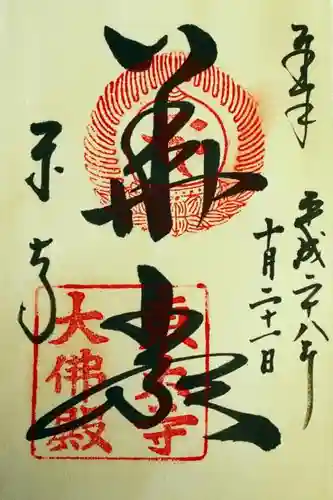 奉拝
平成二十八年
十月二十一日
華嚴
東大寺
東大寺
大佛殿